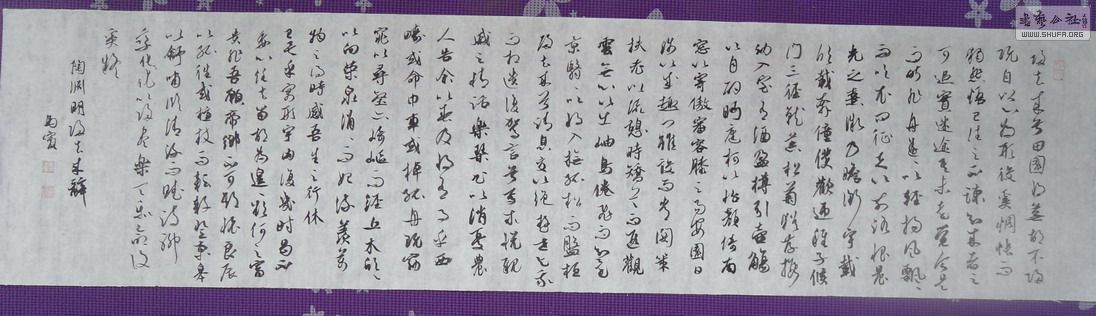 歸去來兮田園將蕪胡不歸
既自以心為形役奚惆悵而
獨悲悟已往之不諫知來者之
可追實迷途其未遠覺今是
而昨非舟遙以輕颺風飄飄
而吹衣問征夫以前路恨晨
光之熹微乃瞻衡宇載
欣載奔僮僕歡迎稚子候
門三徑就荒松菊猶存攜
幼入室有酒盈樽引壺觴
以自酌眄庭柯以怡顏倚南
窗以寄傲審容膝之易安園日
涉以成趣門雖設而常關策
扶老以流憩時矯首而遐觀
雲無心以出岫鳥倦飛而知還
景翳翳以將入撫孤松而盤桓
歸去來兮請息交以絕遊世與我
而相遺復駕言兮焉求悅親
戚之情話樂琴書以消憂農
人告余以春及將有事乎西
疇或命巾車或棹孤舟既窈
窕以尋壑亦崎嶇而經丘木欣欣
以向榮泉涓涓而始流羨萬
物之得時感吾生之行休
已矣乎寓形宇內復幾時曷不
委心任去留胡為遑遑欲何之富
貴非吾願帝鄉不可期懷良辰
以孤往或植杖而耘耔登東皋
以舒嘯臨清流而賦詩聊
乘化以歸盡樂夫天命復
奚疑
陶淵明歸去來辭
WWW.SHUFA.ORG